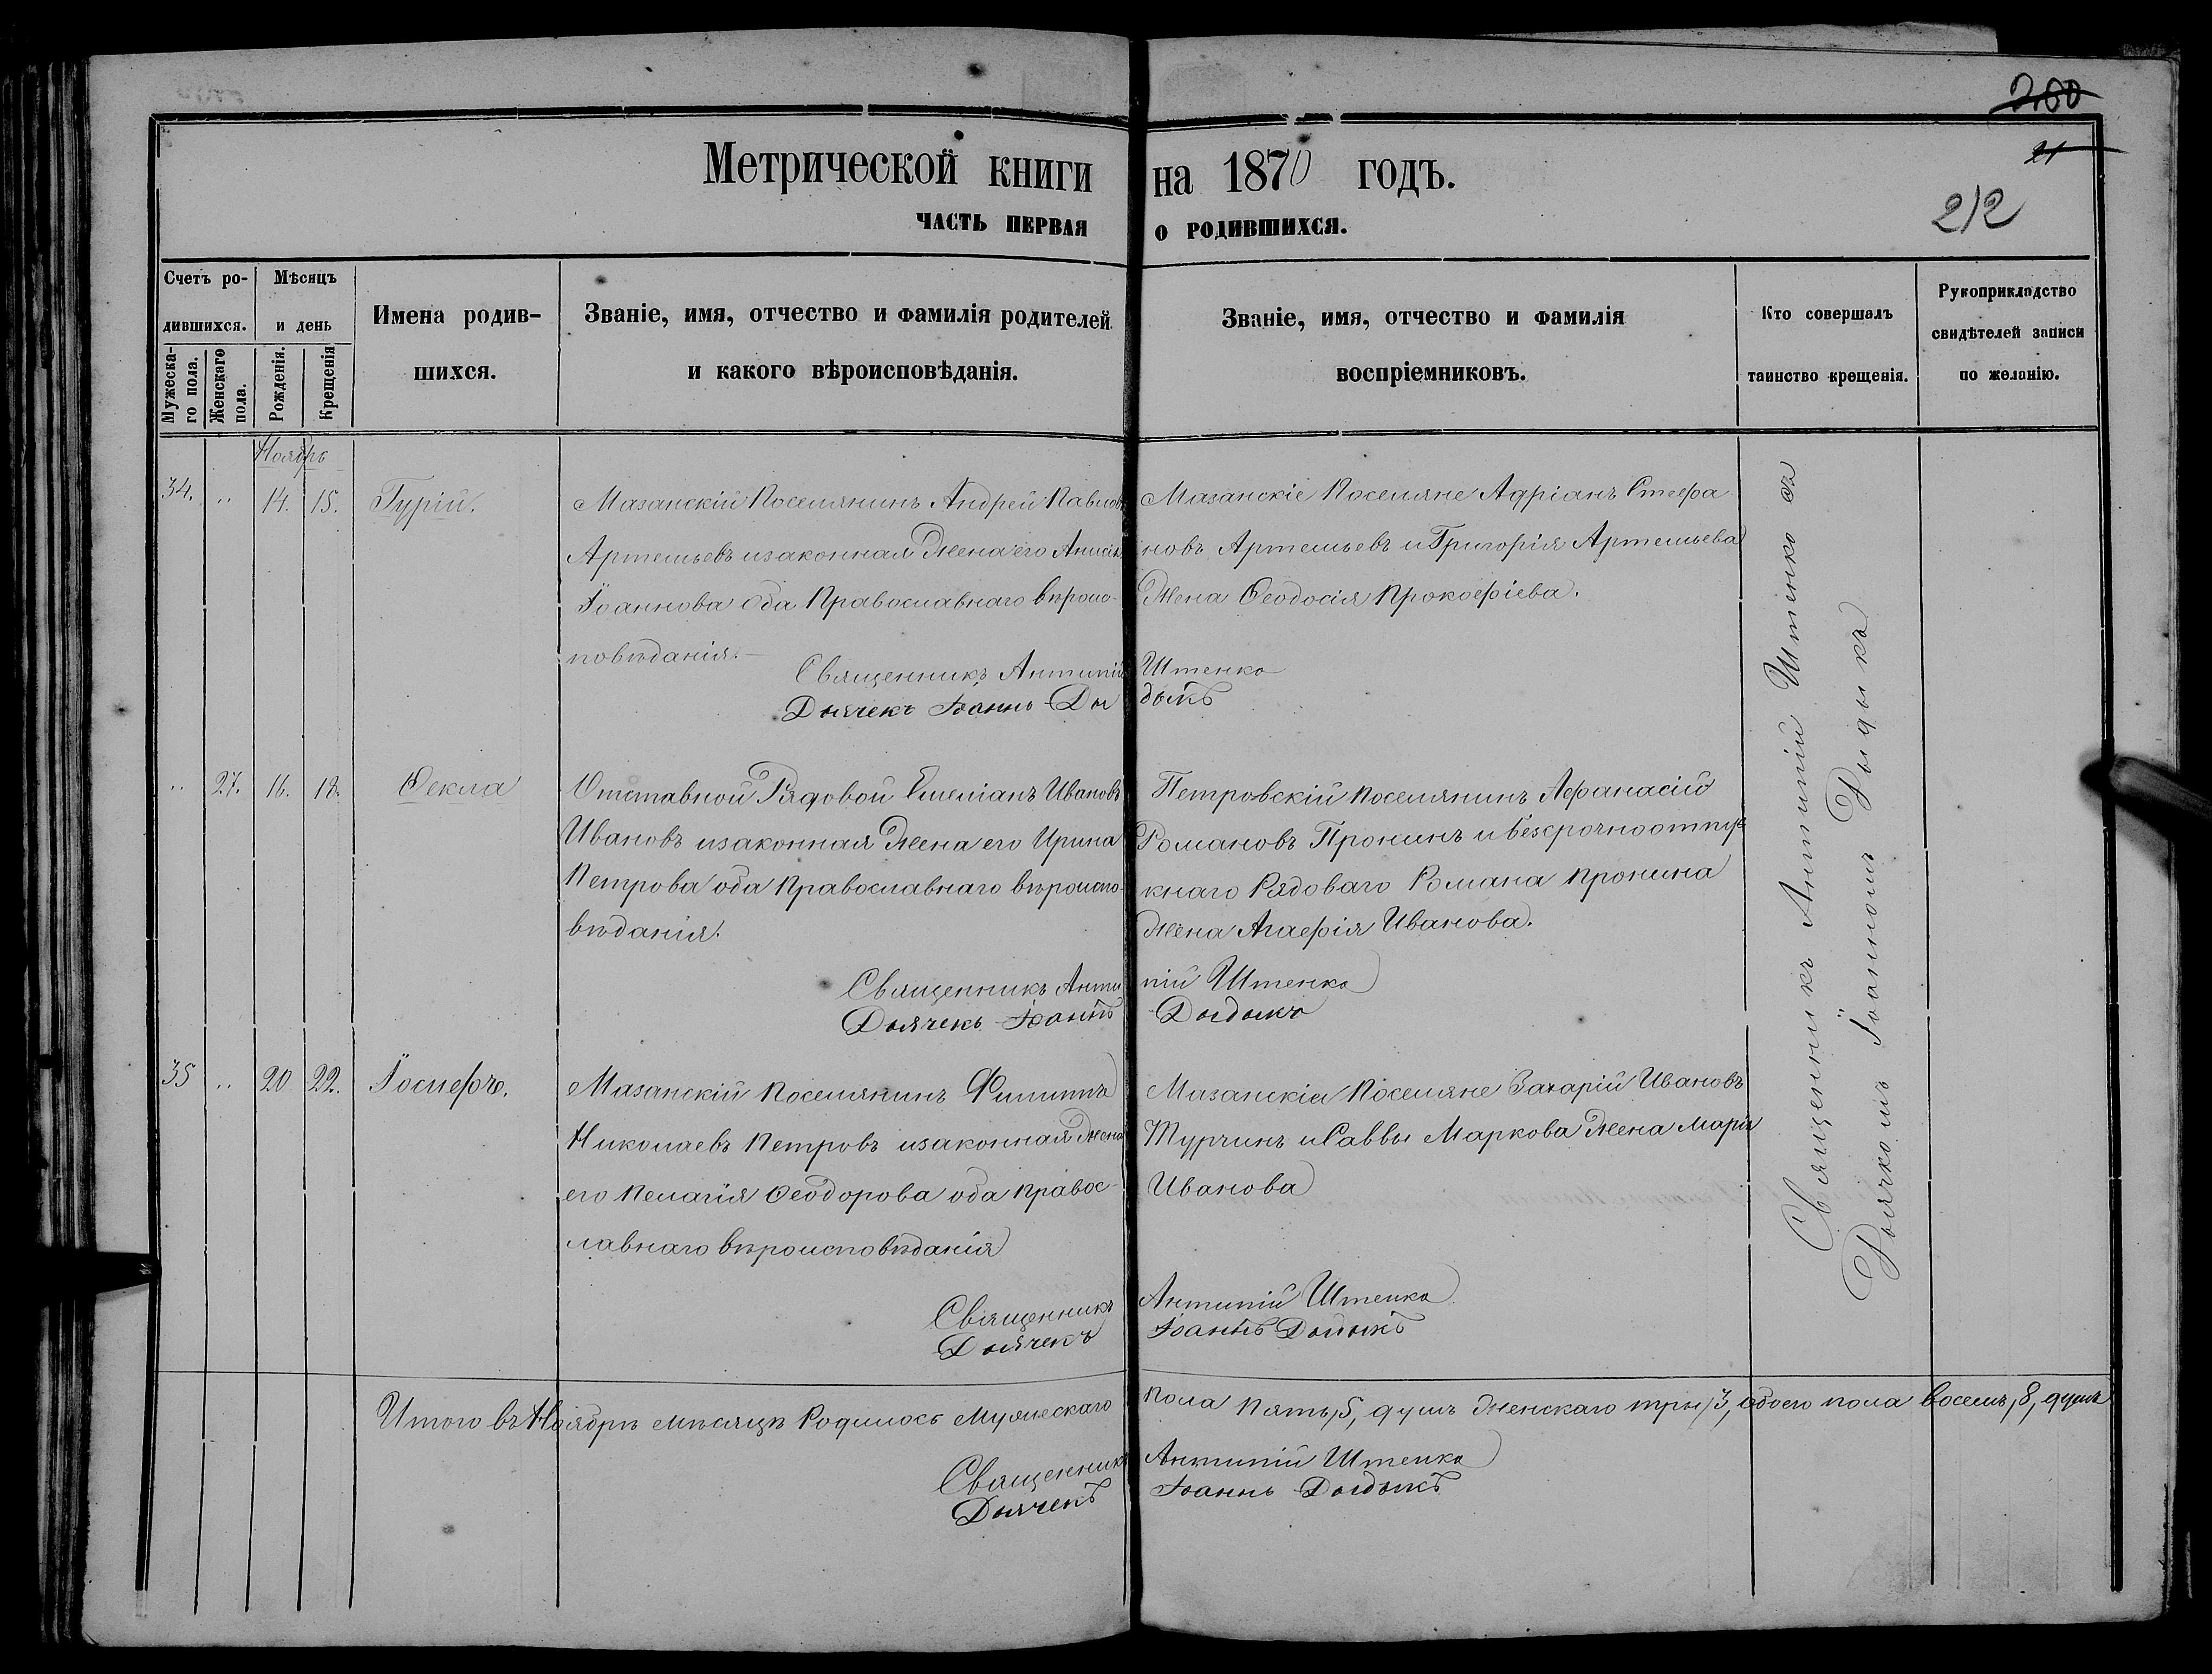 260
21
212
Метрической книги на 1870 годъ.
ЧАСТЬ ПЕРВАЯ О РОДИВШИХСЯ.
Счетъ родившихся.
Мужеска-
го пола.
Женскаго
пола.
Мѣсяцъ
и день
Рожденія.
Крещенія
Имена родив-
шихся.
Званіе, имя, отчество и фамилія родителей
и какого вѣроисповѣданія.
Званіе, имя, отчество и фамилія
воспріемниковъ.
Кто совершалъ
таинство крещенія.
Рукоприкладство
свидѣтелей записи
по желанію.
Ноябрь
34. „ 14. 15. Гурій.
Мазанскій Поселянинъ Андрей Павловъ
Артемьевъ и законная жена его Анисія
Іоаннова оба Православнаго вѣроис-
повѣданія.
Мазанскіе Поселяне Адріанъ Стефа
новъ Артемьевъ и Григорія Артемьева
жена Ѳеодосія Прокофіева.
Священникъ Антипій Штенко
Дьячекъ Іоаннъ Дыдыкъ
„ 27. 16. 18. Ѳекла
Отставной Рядовой Емеліанъ Ивановъ
Ивановъ и законная жена его Ирина
Петрова оба Православнаго вѣроиспо-
вѣданія.
Петровскій поселянинъ Афанасій
Романовъ Пронинъ и безсрочноотпус
кнаго Рядоваго Романа Пронина
жена Агафія Иванова.
Священникъ Антипій Штенко
Дьячекъ Іоаннъ Дыдыкъ
35 „ 20 22. Іосифъ.
Мазанскій поселянинъ Филиппъ
Николаевъ Петровъ и законная жена
его Пелагія Ѳеодорова оба Правос-
лавнаго вѣроисповѣданія
Мазанскіе Поселяне Захарій Ивановъ
Турчинъ и Саввы Маркова жена Марія
Иванова
Священникъ Антипій Штенко
Дьячекъ Іоаннъ Дыдыкъ
Священникъ Антипій Штенко съ
Дьячкомъ Іоанномъ Дыдыкъ
Итого въ Ноябрѣ мѣсяцѣ Родилось Мужескаго пола пять, 5, душъ женскаго три, 3, обоего пола восемь, 8, душъ
Священникъ Антипій Штенко
Дьячекъ Іоаннъ Дыдыкъ